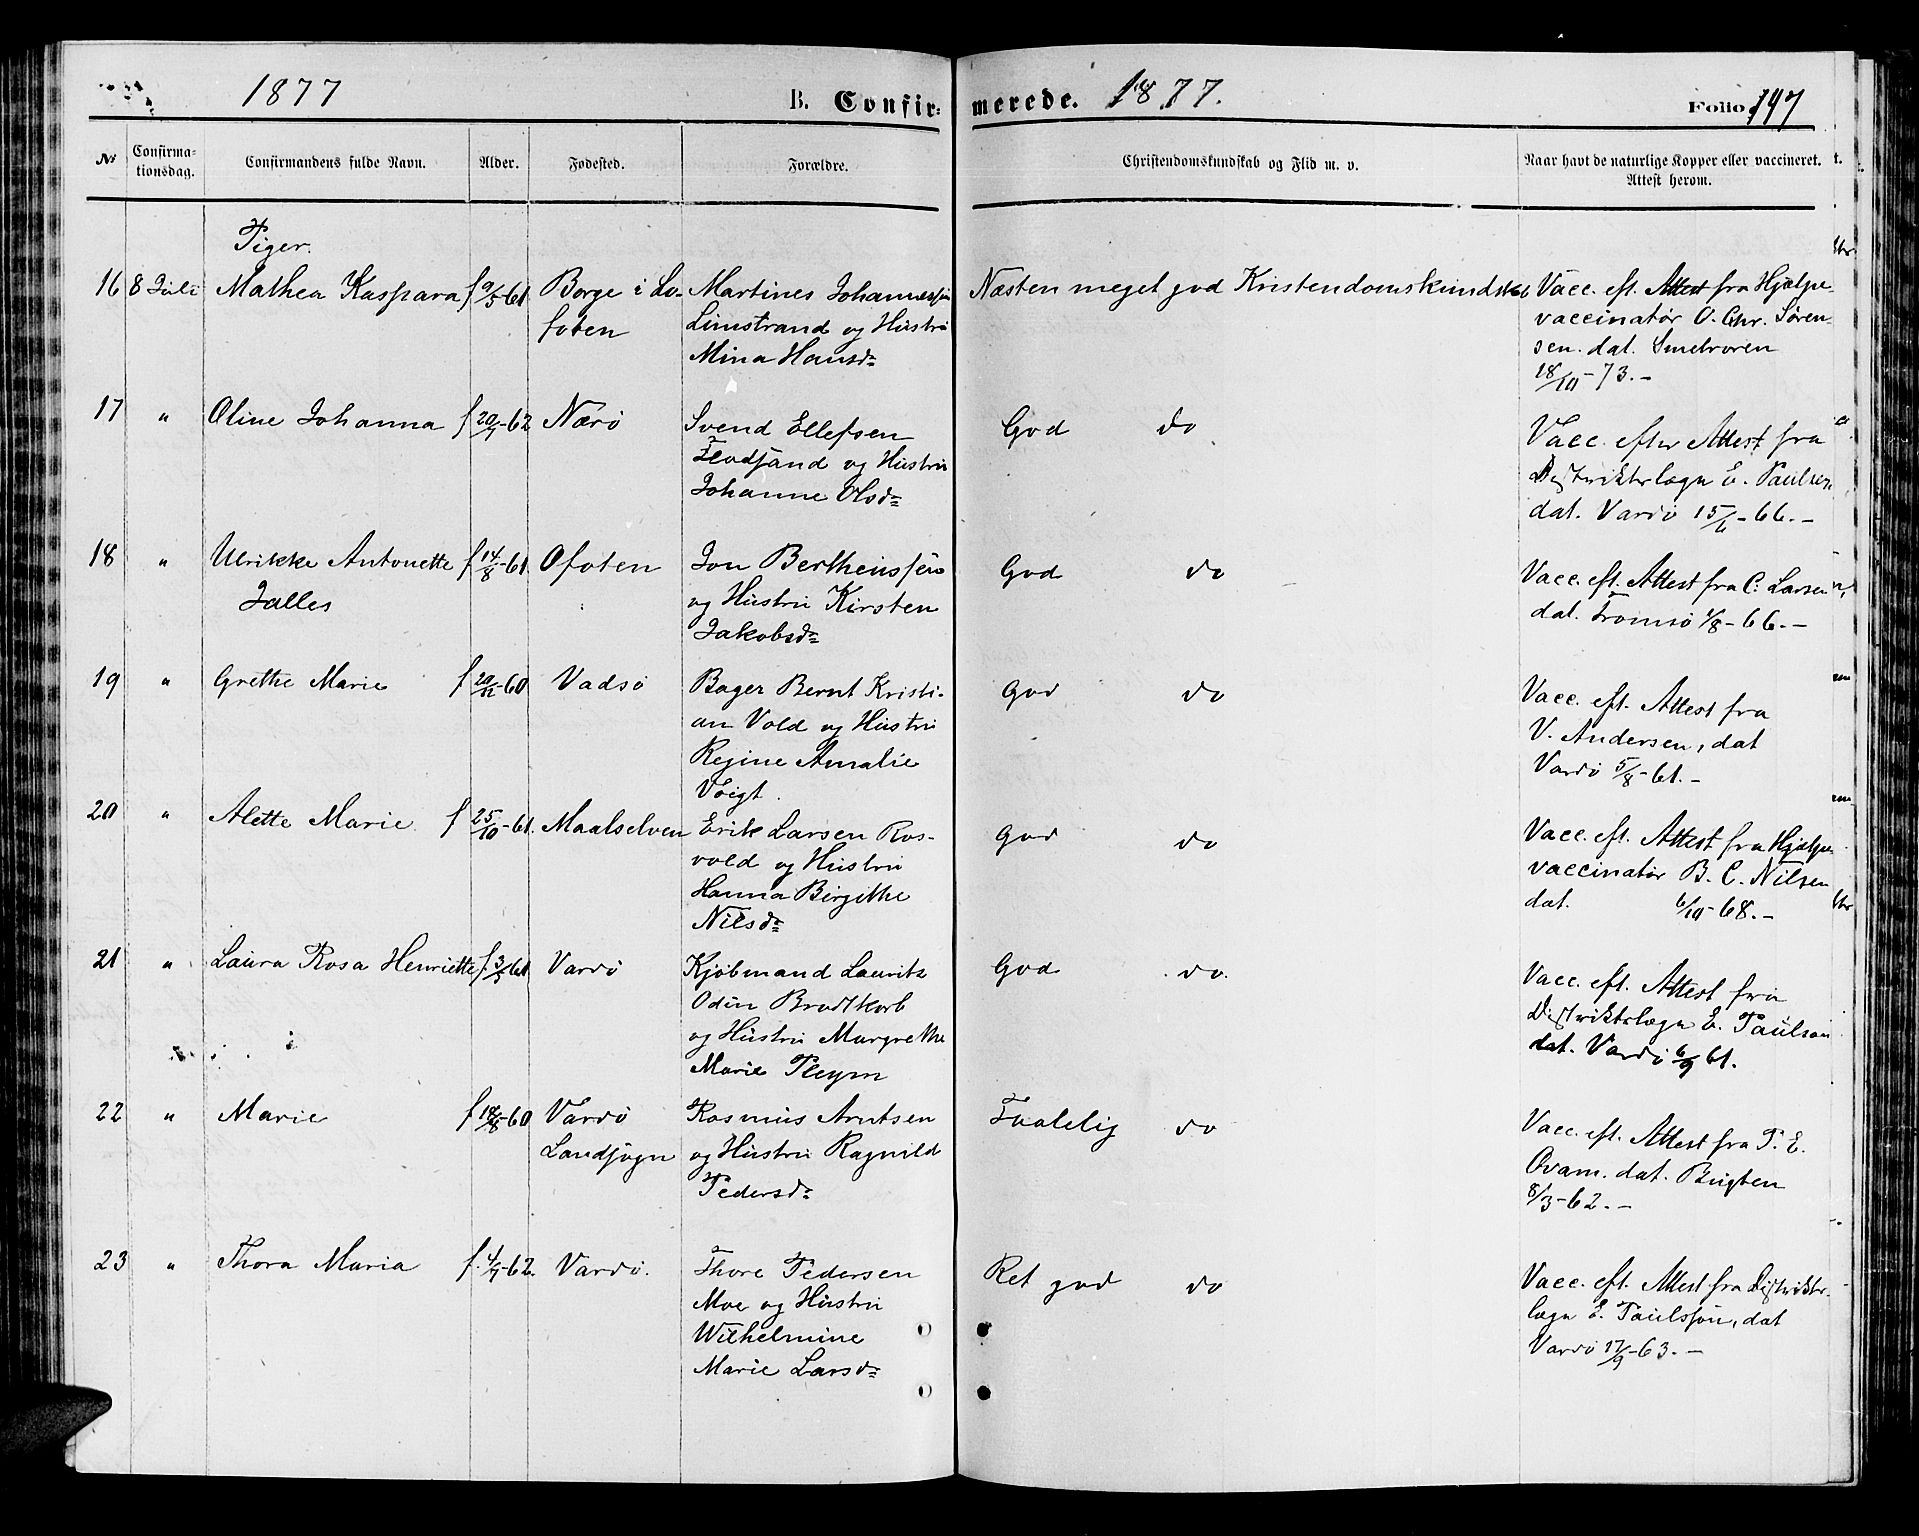 1877
B. Confir-
merede. 1877.
Folio 197
No
Confirma-
tionsdag.
Confirmandens fulde Navn.
Alder.
Fødested.
Forældre.
Christendomskundskab og Flid m. v.
Naar havt de naturlige Kopper eller vaccineret.
Attest herom.
Piger.
16 8 Juli Mathea Kaspara f 9/5-61 Borge i Lo-
foten
Martines Johannessen
Limstrand og Hustru
Mina Hansd.
Næsten meget god Kristendomskundskab
Vacc. eft. Attest fra Hjælpe-
vaccinatør O. Chr. Søren-
sen. dat.
18/10-73.-
17 " Oline Johanna f 20/7-62 Nærø
Svend Ellefsen
og Hustru
Johanne Olsd.
God do
Vacc. efter Attest fra
Distriktslæge E. Paulsen
dat. Vardø 15/6-66.-
18 " Ulrikke Antonette f 14/8-61. Ofoten
Jalles
Jon Bertheussen
og Hustru Kirsten
Jakobsd.
God do
Vacc. eft. Attest fra C. Larsen
dat. Tromsø 1/8-66.-
19 " Grethe Marie f 20/12-60 Vadsø
Bager Bernt Kristi-
an Vold og Hustru
Regine Amalie
Voigt.
God do
Vacc. eft. Attest fra
V. Andersen, dat
Vardø 5/8-61.-
20 " Alette Marie f 25/10-61. Maalselven
Erik Larsen Ros-
vold og Hustru
Hanna Birgithe
Nilsd.
God do
Vacc. eft. Attest fra Hjælpe-
vaccinatør B. C. Nilsen
dat. 6/10-68.-
21 " Laura Rosa Henriette f. 3/5-61 Vardø
Kjøbmand Lauritz
Odin Brodtkorb
og Hustru Margrethe
Marie Pleym
God do.
Vacc. eft. Attest fra
Distriktslæge E. Paulson
dat. Vardø 6/9 61.
22 " Marie f 18/8-60 Vardø
Landsogn
Rasmus Arntsen
og Hustru Ragnild
Pedersd.
Taalelig do
Vacc. eft. Attest fra P. E.
Qvam. dat. Bugten
8/3-62.-
23 " Thora Maria f. 4/7-62. Vardø.
Thore Pedersen
Moe og Hustru
Wilhelmine
Marie Larsd.
Ret god do
Vacc. eft. Attest fra Distrikts-
læge E. Paulsson, dat
Vardø 17/9-63.-